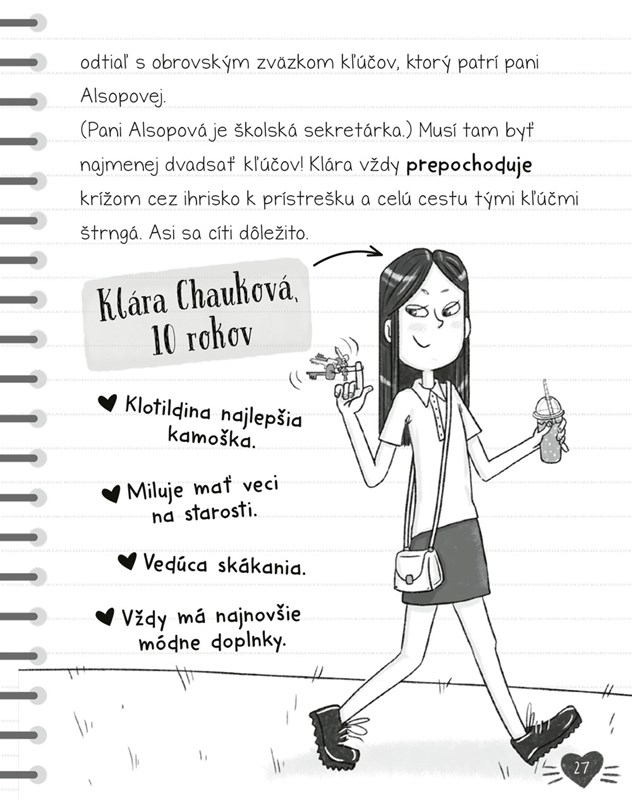 odtiaľ s obrovským zväzkom kľúčov, ktorý patrí pani
Alsopovej.
(Pani Alsopová je školská sekretárka.) Musí tam byť
najmenej dvadsať kľúčov! Klára vždy prepochoduje
krížom cez ihrisko k prístrešku a celú cestu tými kľúčmi
štrngá. Asi sa cíti dôležito.
Klára Chauková,
10 rokov
Klotildina najlepšia
kamoška.
Miluje mať veci
na starosti.
Vedúca skákania.
Vždy má najnovšie
módne doplnky.
27